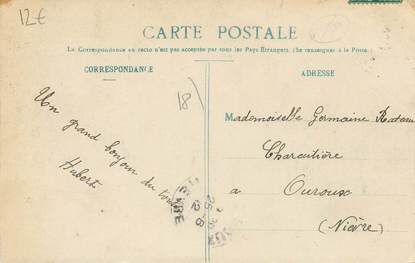 12€
CARTE POSTALE
La Correspondance au recto n'est pas acceptée par tous les Pays Étrangers. (Se renseigner à la Poste)
CORRESPONDANCE
ADRESSE
18)
Un grand bonjour du
Hubert
Mademoiselle Germaine
Charcutière
a
Ouroux
(Nièvre)